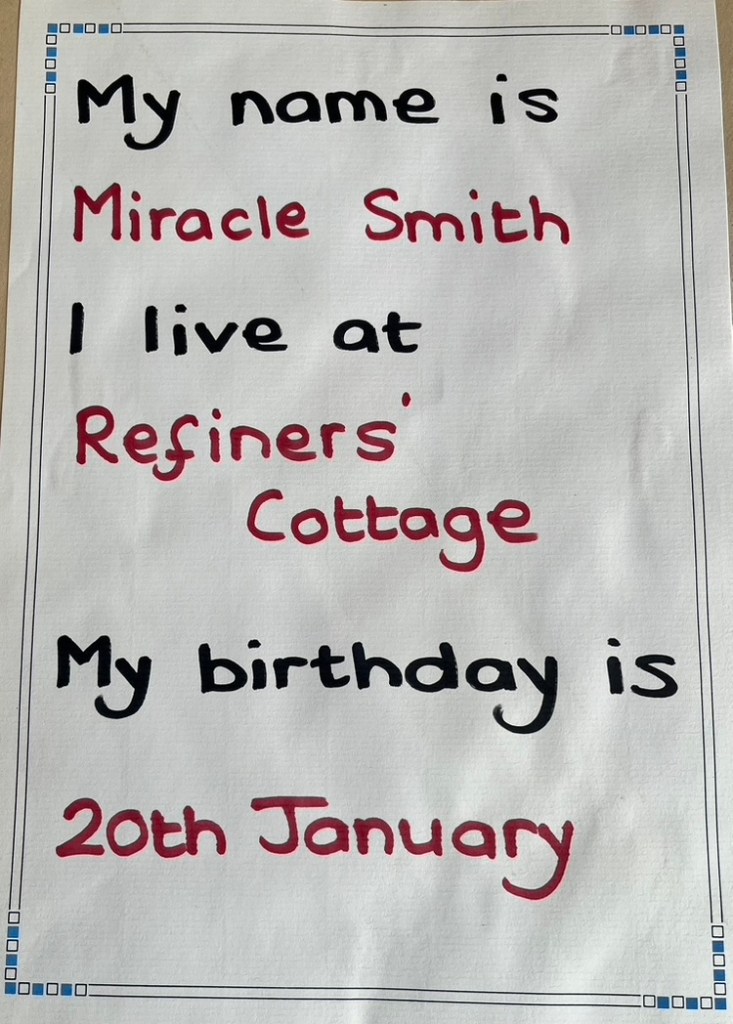 My name is
Miracle Smith
I live at
Refiners'
Cottage
My birthday is
20th January